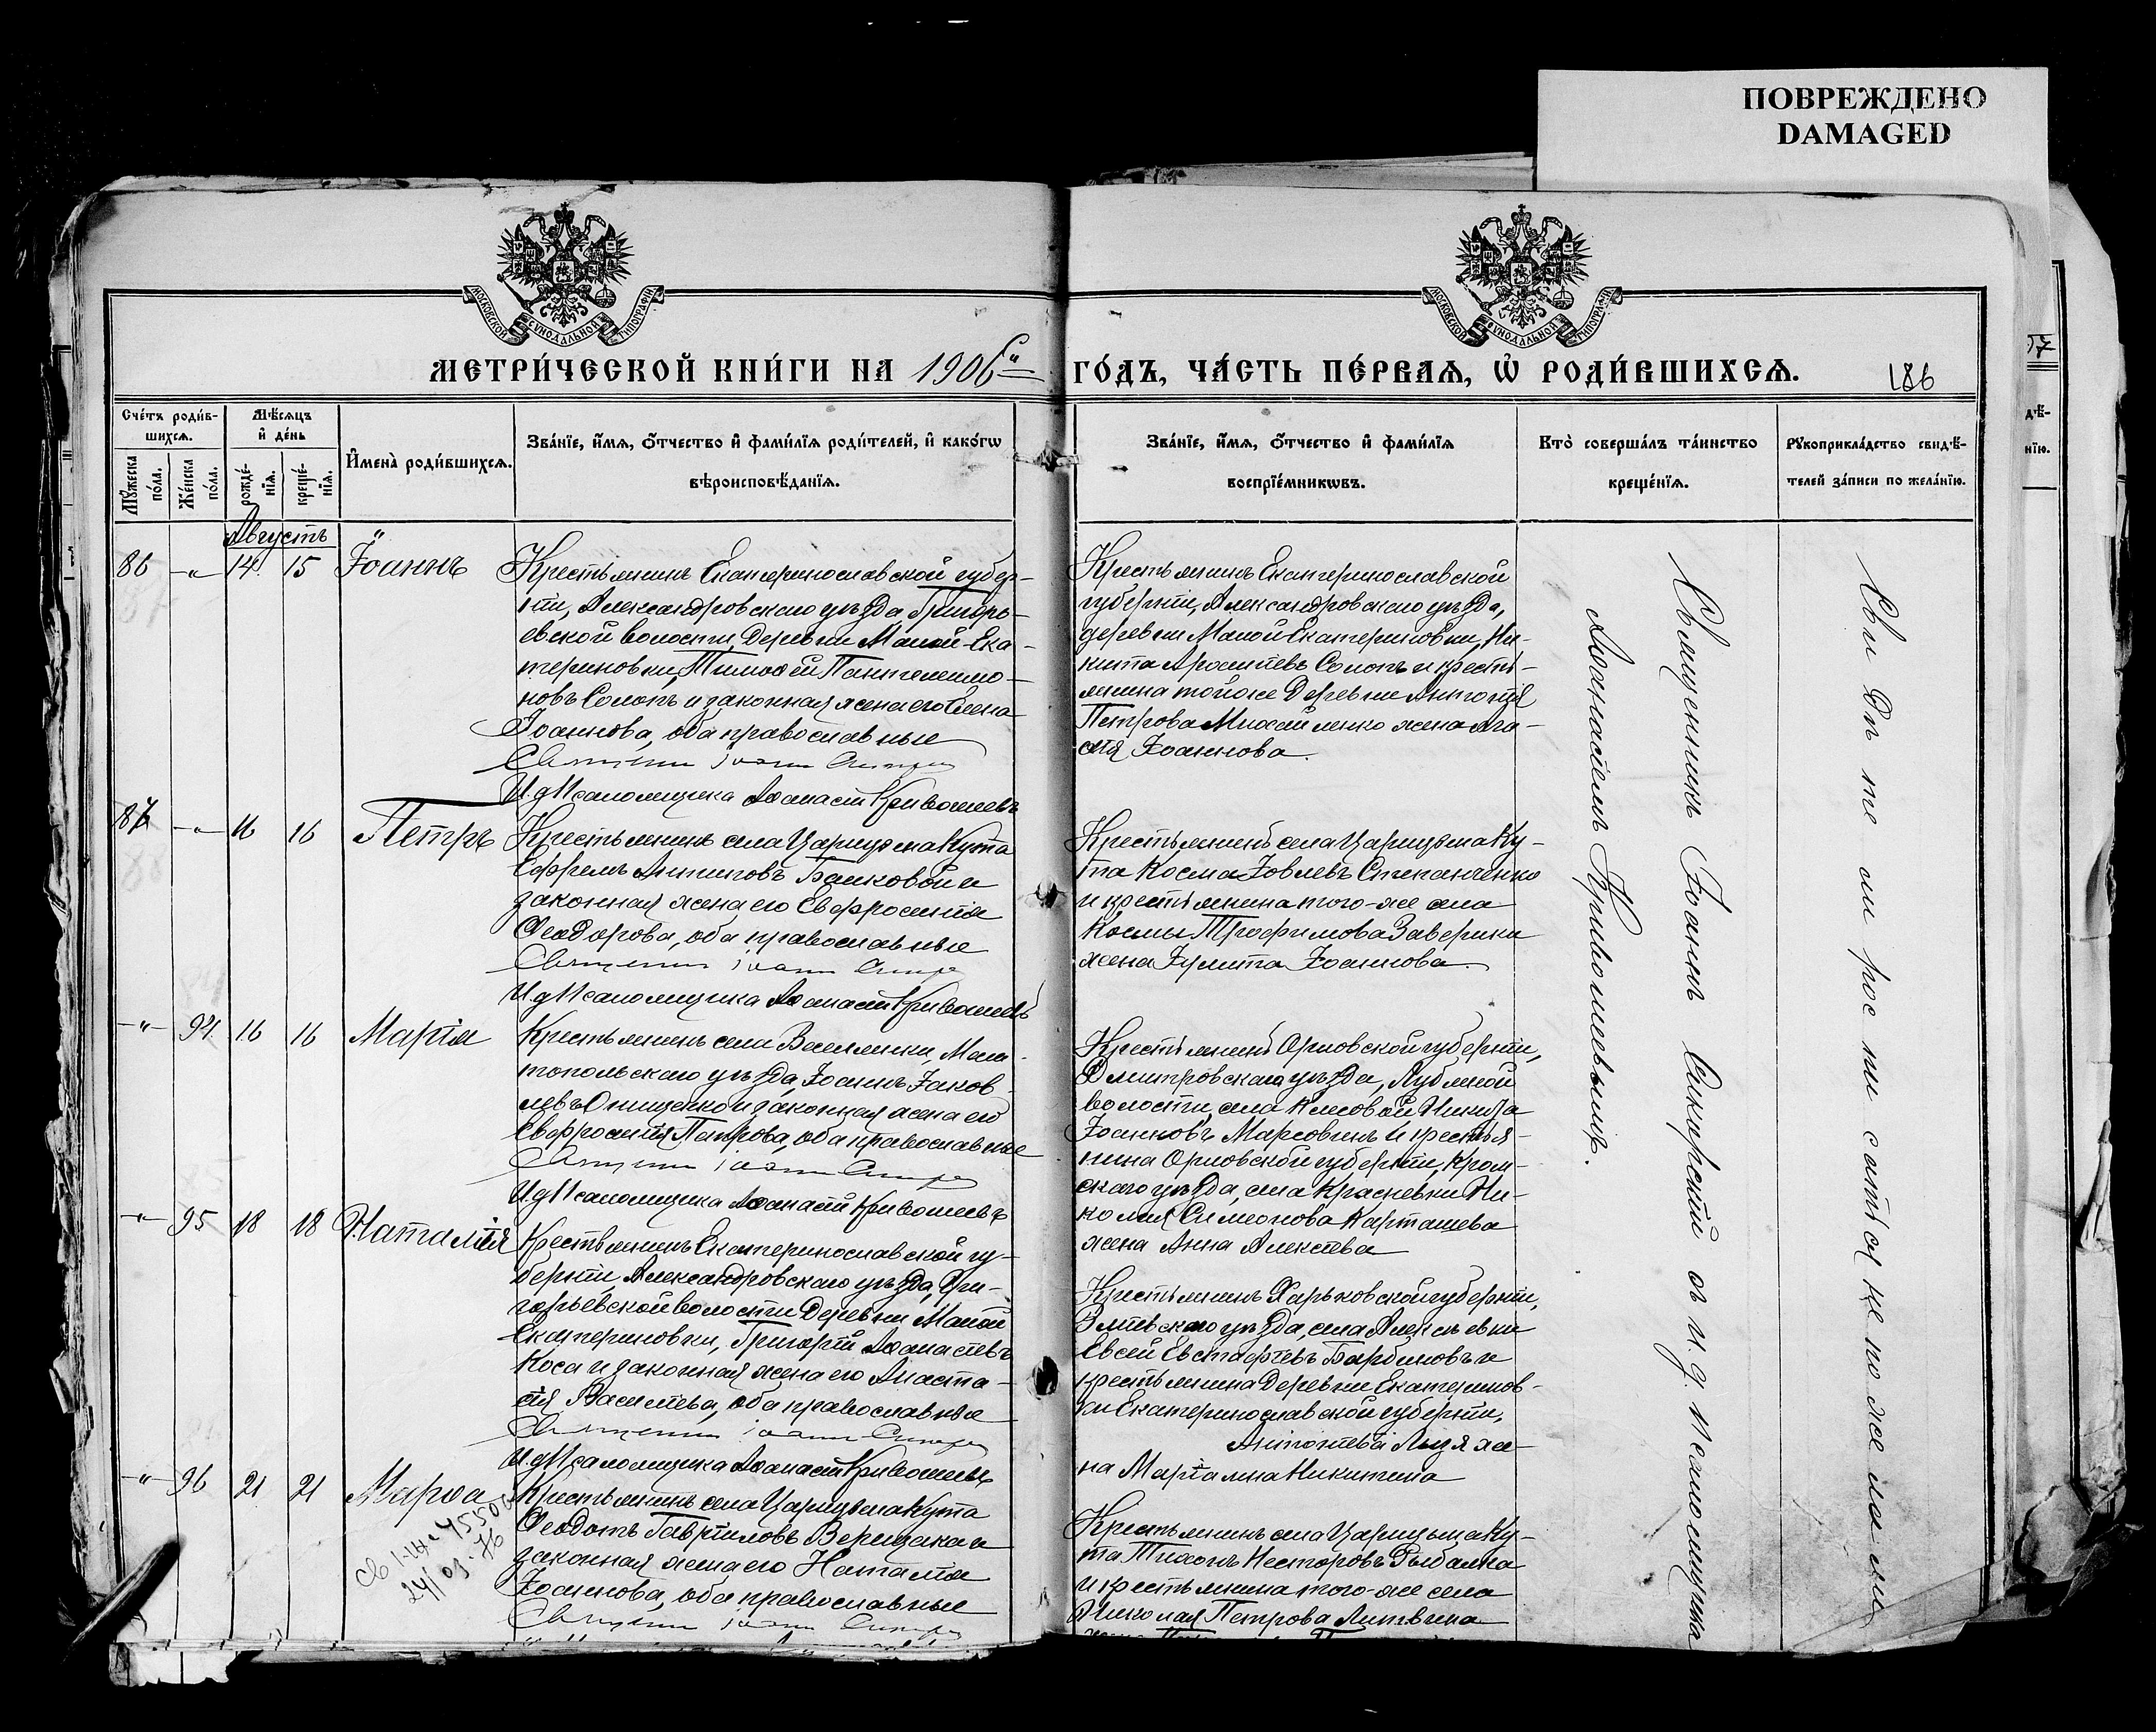 ПОВРЕЖДЕНО
DAMAGED
МОСКОВСКОЙ СѴНОДАЛЬНОЙ ТИПОГРАФІИ
МОСКОВСКОЙ СѴНОДАЛЬНОЙ ТИПОГРАФІИ
МЕТРИ́ЧЕСКОЙ КНИ́ГИ НА 1906
ГО́ДЪ, ЧА́СТЬ ПЕ́РВАѦ, Ѡ҆ РОДИ́ВШИХСѦ.
186
Сче́тъ роди́в-
шихсѧ.
Мꙋ́жеска по́ла.
Же́нска по́ла.
Мѣ́сѧцъ
и҆ де́нь
рожде́-
нїѧ.
креще́-
нїѧ.
И҆мена̀ роди́вшихсѧ.
Зва́нїе, и҆́мѧ, ѻ҆́тчество и҆ фами́лїѧ роди́телей, и҆ како́гѡ
вѣроисповѣ́данїѧ.
Зва́нїе, и҆́мѧ, ѻ҆́тчество и҆ фами́лїѧ
воспрїе́мникѡвъ.
Кто̀ соверша́лъ та́инство
креще́нїѧ.
Рꙋкоприкла́дство свидѣ́-
телей за́писи по жела́нїю.
Августъ
86 -"- 14. 15 Іоаннъ
Крестьянинъ Екатеринославской губер-
ніи, Александровскаго уѣзда, Григорь-
евской волости, деревни Малой-Ека-
териновки, Тимоѳей Пантелеимо-
новъ Солопъ и законная жена его Елена
Іоаннова, оба православные
Священ Іоанн
И. д. Псаломщика Аѳанасій Кривошеевъ
Крестьянинъ Екатеринославской
губерніи, Александровскаго уѣзда,
деревни Малой Екатериновки, Ни-
кита Солопъ и кресть-
янина той же деревни Антонія
Петрова Михайленко жена Ага-
ѳія Іоаннова.
87 -"- 16 16 Петръ
Крестьянинъ села Царицына Кута
Ефремъ Антиповъ Балковой и
законная жена его Евфросинія
Ѳеодорова, оба православные
Священ Іоанн
И. д. Псаломщика Аѳанасій Кривошеевъ
Крестьянинъ села Царицына Ку-
та Косма Іовлевъ Степанченко
и крестьянина того-же села
Космы Трофимова Заверюхи
жена Іулита Іоаннова.
-"- 94. 16 16 Марія
Крестьянинъ села Веселянки, Мели-
топольскаго уѣзда, Іоаннъ Іаков-
левъ Онищенко и законная жена его
Евфросинія Петрова, оба православные
Священ Іоанн
И. д. Псаломщика Аѳанасій Кривошеевъ
Крестьянинъ Орловской губерніи,
Дмитровскаго уѣзда, Лубяной
волости, села Никита
Іоанновъ и крестья-
нина Орловской губерніи, Кром-
скаго уѣзда, села Ни-
колая Симеонова Карташева
жена Анна Алексѣева
-"- 95 18 18 Наталія
Крестьянинъ Екатеринославской гу-
берніи, Александровскаго уѣзда, Гри-
горьевской волости деревни Малой
Екатериновки, Григорій Аѳанасіевъ
Коса и законная жена его Анаста-
сія Васильева, оба православные
Священ Іоанн
И. д. Псаломщика Аѳанасій Кривошеевъ
Крестьянинъ Харьковской губерніи,
Зміевскаго уѣзда, села Алексѣевки
Евсей Евстафіевъ и
крестьянина деревни Екатеринов-
ки Екатеринославской губерніи,
же-
на Никитина
-"- 96 21 21 Марѳа
Крестьянинъ села Царицына Кута
Ѳеодотъ Гавріиловъ Верещака и
законная жена его Наталія
Іоаннова, оба православные
Священ Іоанн
Крестьянинъ села Царицына Ку-
та Тихонъ Несторовъ Рыбалка
и крестьянина того-же села
Николая Петрова Литвина
Священникъ Іоаннъ съ и. д. псаломщика
Аѳанасіемъ Кривошеевымъ.